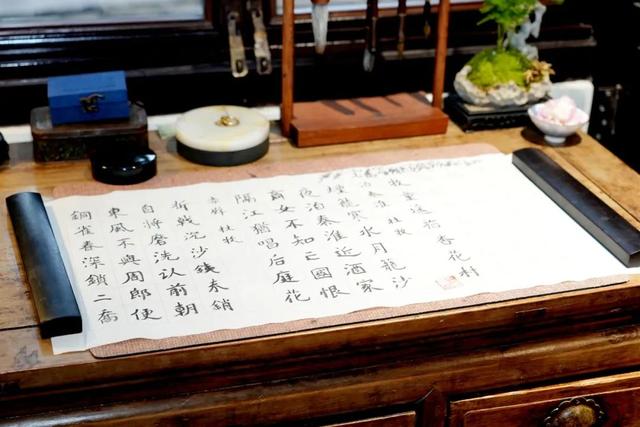 牧童遥指杏花村
泊秦淮 杜牧
煙籠寒水月籠沙
夜泊秦淮近酒家
商女不知亡國恨
隔江猶唱后庭花
赤壁 杜牧
折戟沉沙鐵未銷
自將磨洗认前朝
東風不與周郎便
銅雀春深鎖二喬